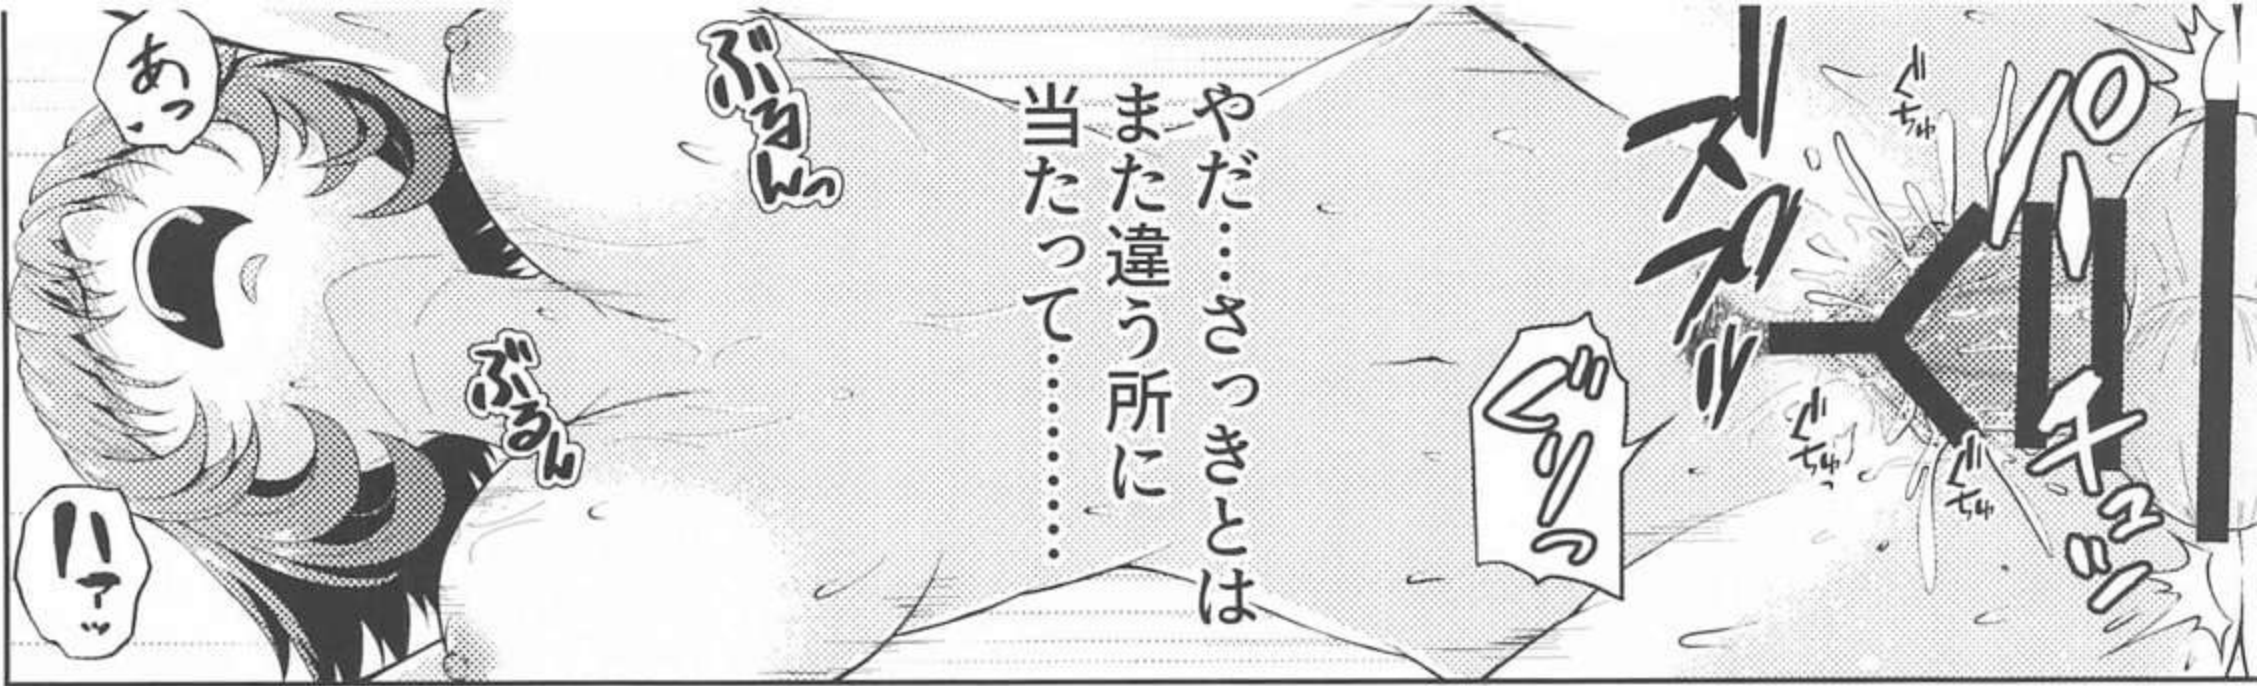 パチュッ
ズプッ
ぐちゅ
ぐちゅっ
ぐちゅ
ぐりっ
やだ…さっきとは
また違う所に
当たって………
ぶるんっ
ぶるん
あっ
ハァッ